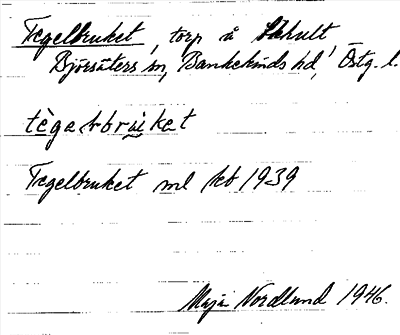 Tegelbruket, torp å Ökhult
Björsäters sn, Bankekinds hd, Östg. l.
tègəlbrukət
Tegelbruket ml kb 1939
Maja Nordlund 1946.